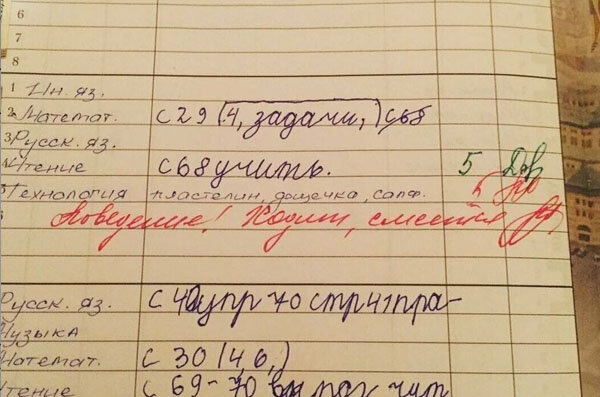 6
7
8
1 Ин. яз.
2 Математ. с 29 (4, задачи,) с68
3 Русск. яз.
4 Чтение с68учить. 5
5 Технология пластелин, дощечка, салф. 5
Поведение! Ходит, смеется
Русск. яз. с 42упр 70 стр41пра-
Музыка
Математ. с 30 (4,6,)
Чтение с 69-70